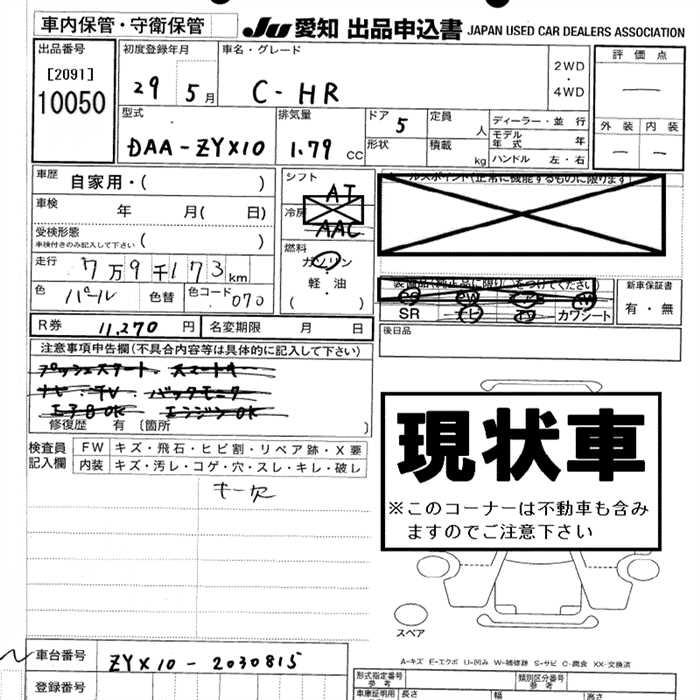 車内保管・守衛保管
JU 愛知 出品申込書 JAPAN USED CAR DEALERS ASSOCIATION
出品番号
[2091]
10050
初度登録年月
29 5月
車名・グレード
C-HR
2WD
・
4WD
評価点
—
外装 内装
— —
型式
DAA-ZYX10
排気量
1.79 CC
ドア 5
形状
定員 人
積載 kg
ディーラー・並行
モデル年式 年
ハンドル 左・右
車歴 自家用・( )
車検 年 月( 日)
受検形態
車検付きのみ記入して下さい ( )
走行 7万9千173km
色 パール 色替 色コード 070
シフト
AT
冷房
AAC
燃料
ガソリン
・軽・油・
( )
ールスポイント(正常に機能するものに限ります)
装備品(純正品に限り○をつけてください)
SR カワシート
新車保証書
有・無
後日品
R券 11,270 円 名変期限 月 日
注意事項申告欄(不具合内容等は具体的に記入して下さい)
プッシュスタート スマートキー
ナビ・TV バックモニタ
エンジンOK
修復歴 有〔箇所 〕
検査員記入欄
FW キズ・飛石・ヒビ割・リペア跡・X要
内装 キズ・汚レ・コゲ・穴・スレ・キレ・破レ
キー欠
現状車
※このコーナーは不動車も含み
ますのでご注意下さい
スペア
A-キズ E-エクボ U-凹み W-補修跡 S-サビ C-腐食 XX-交換済
車台番号 ZYX10-2030815
登録番号
形式指定番号
参考
類別区分番号
参考
車庫証明用
参考
長さ
高さ